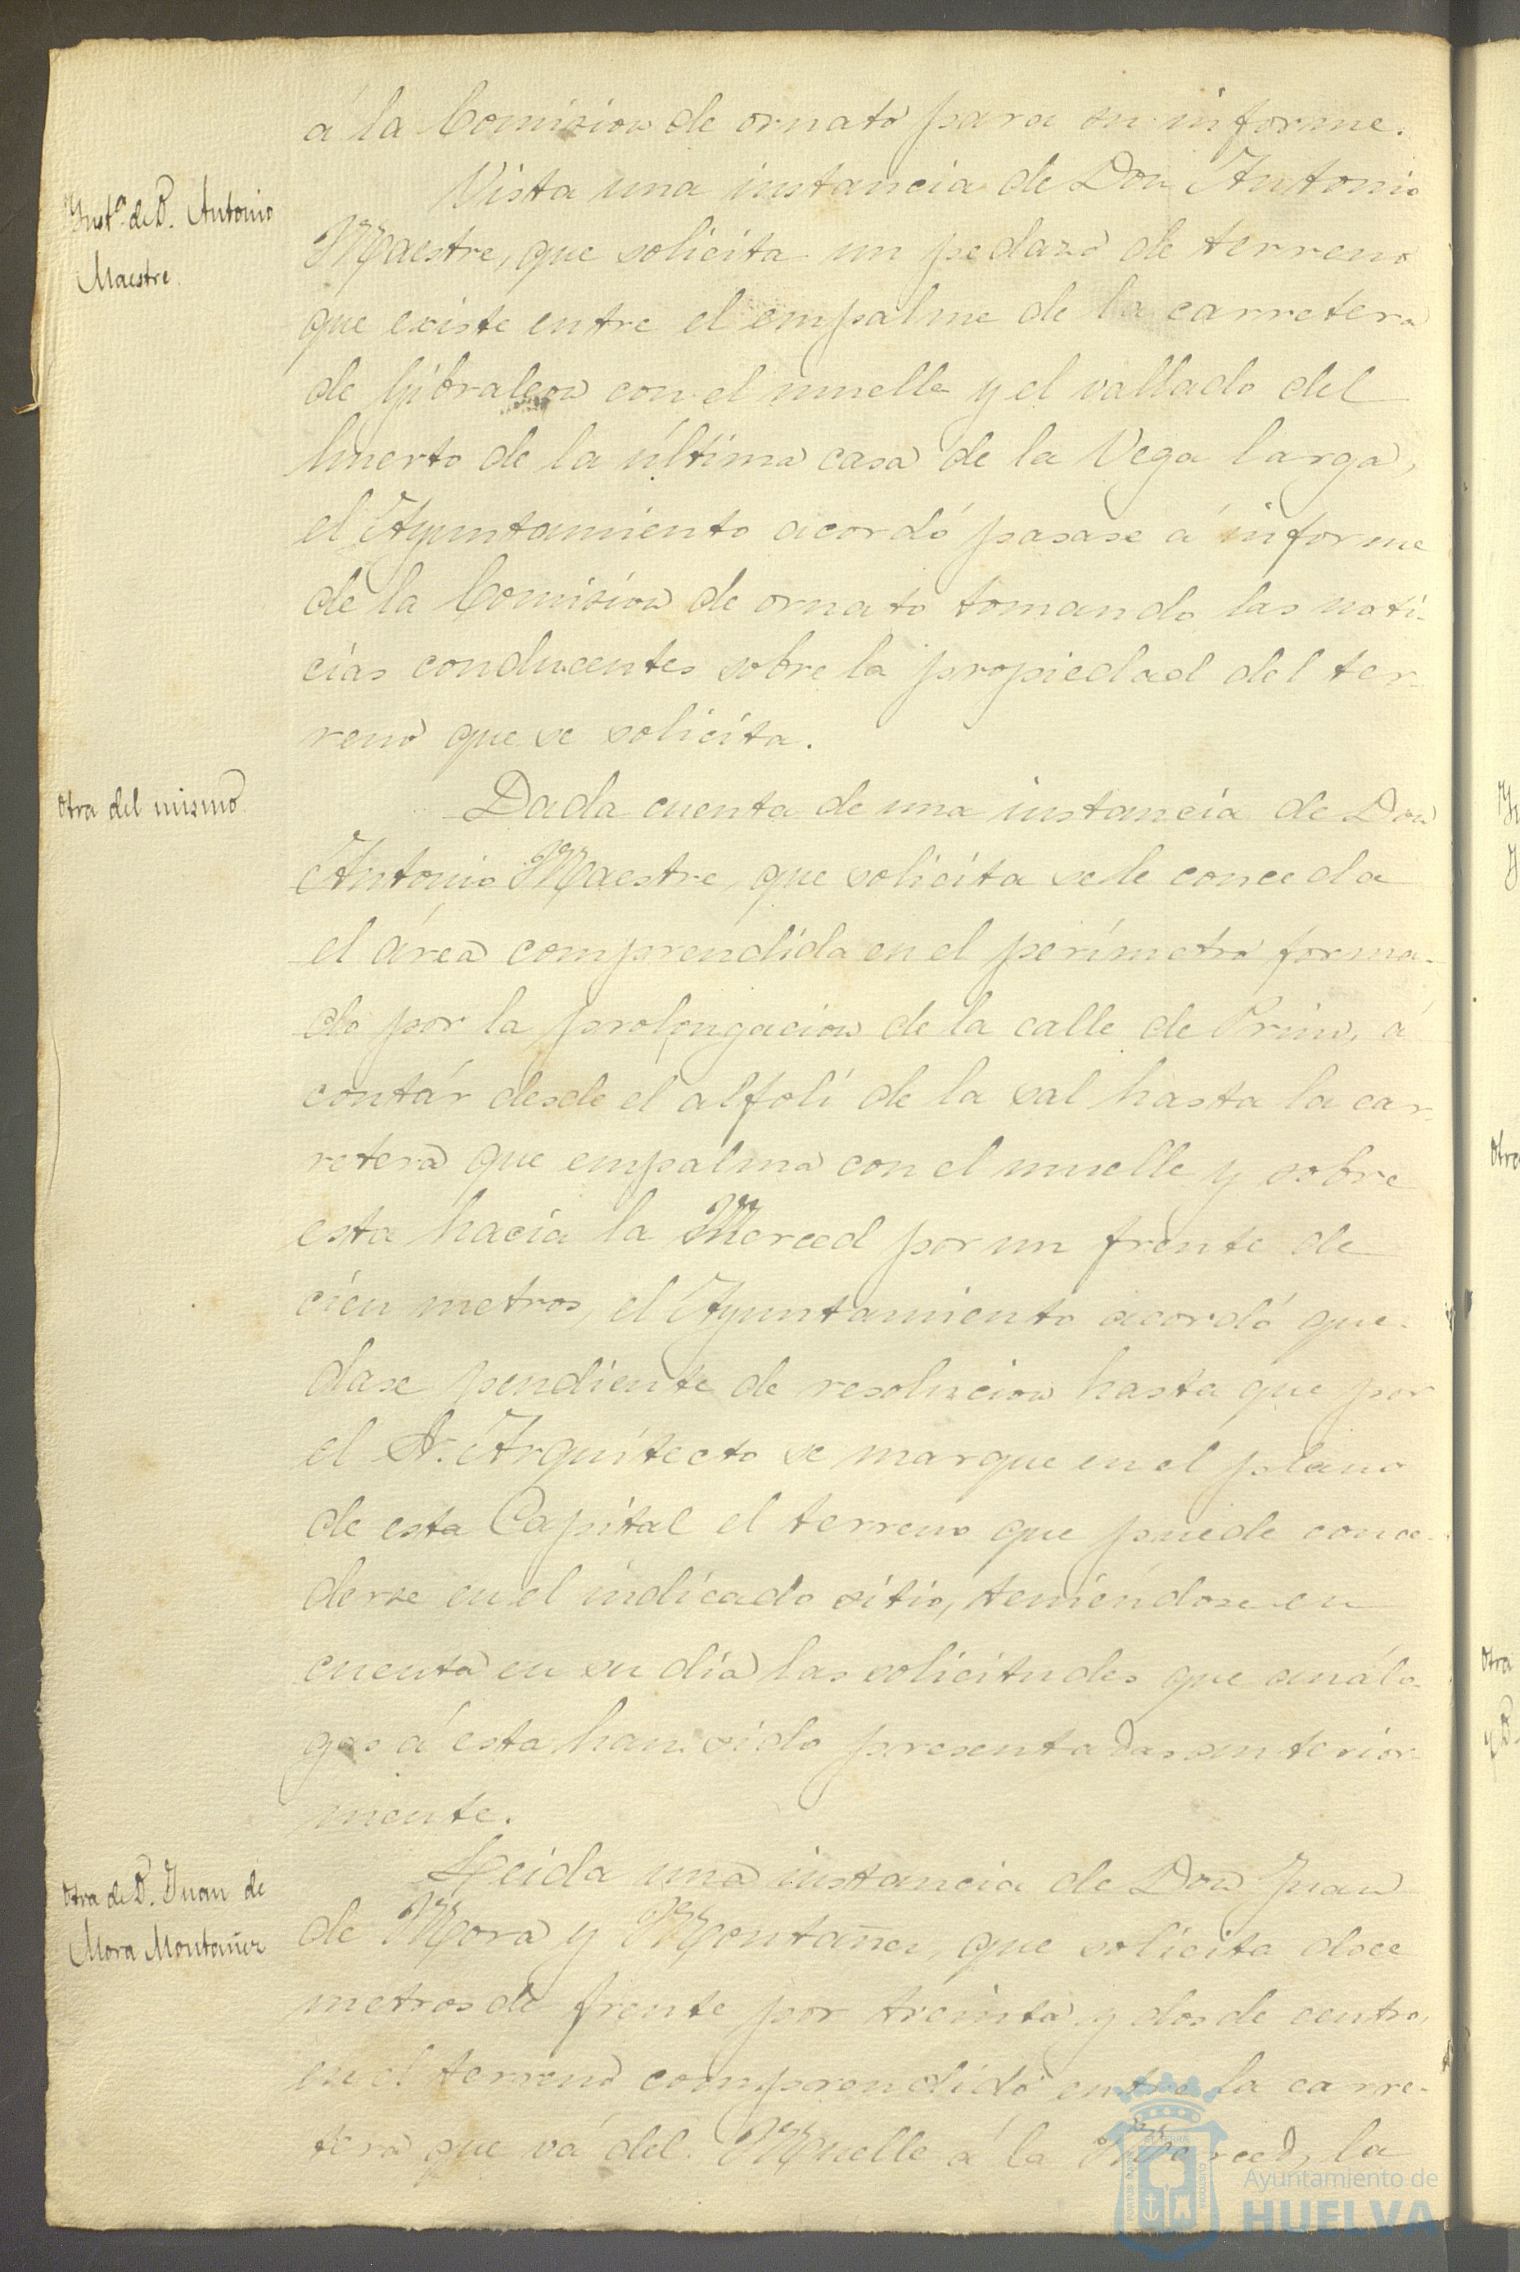 á la Comision de ornato para su informe.
Inst.ª de D. Antonio
Maestre.
Vista una instancia de Don Antonio
Maestre, que solicita un pedazo de terreno
que existe entre el empalme de la carretera
de Gibraleon con el muelle y el vallado del
huerto de la última casa de la Vega larga,
el Ayuntamiento acordó pasase á informe
de la Comision de ornato tomando las noti-
cias conducentes sobre la propiedad del ter-
reno que se solicita.
Otra del mismo
Dada cuenta de una instancia de Don
Antonio Maestre, que solicita se le conceda
el área comprendida en el perímetro forma-
do por la prolongacion de la calle de Prim, á
contár desde el alfolí de la sal hasta la car-
retera que empalma con el muelle y sobre
esta hacia la Merced por un frente de
cien metros, el Ayuntamiento acordó que-
dase pendiente de resolucion hasta que por
el Sr. Arquitecto se marque en el plano
de esta Capital el terreno que puede conce-
derse en el indicado sitio, teniéndose en
cuenta en su dia las solicitudes que análo-
gas á esta han sido presentadas anterior-
mente.
Otra de D. Juan de
Mora Montañer
Leida una instancia de Don Juan
de Mora y Montañer, que solicita doce
metros de frente por treinta y dos de centro,
en el terreno comprendido entre la carre-
tera que vá del Muelle á la Merced, la
Ayuntamiento de
HUELVA